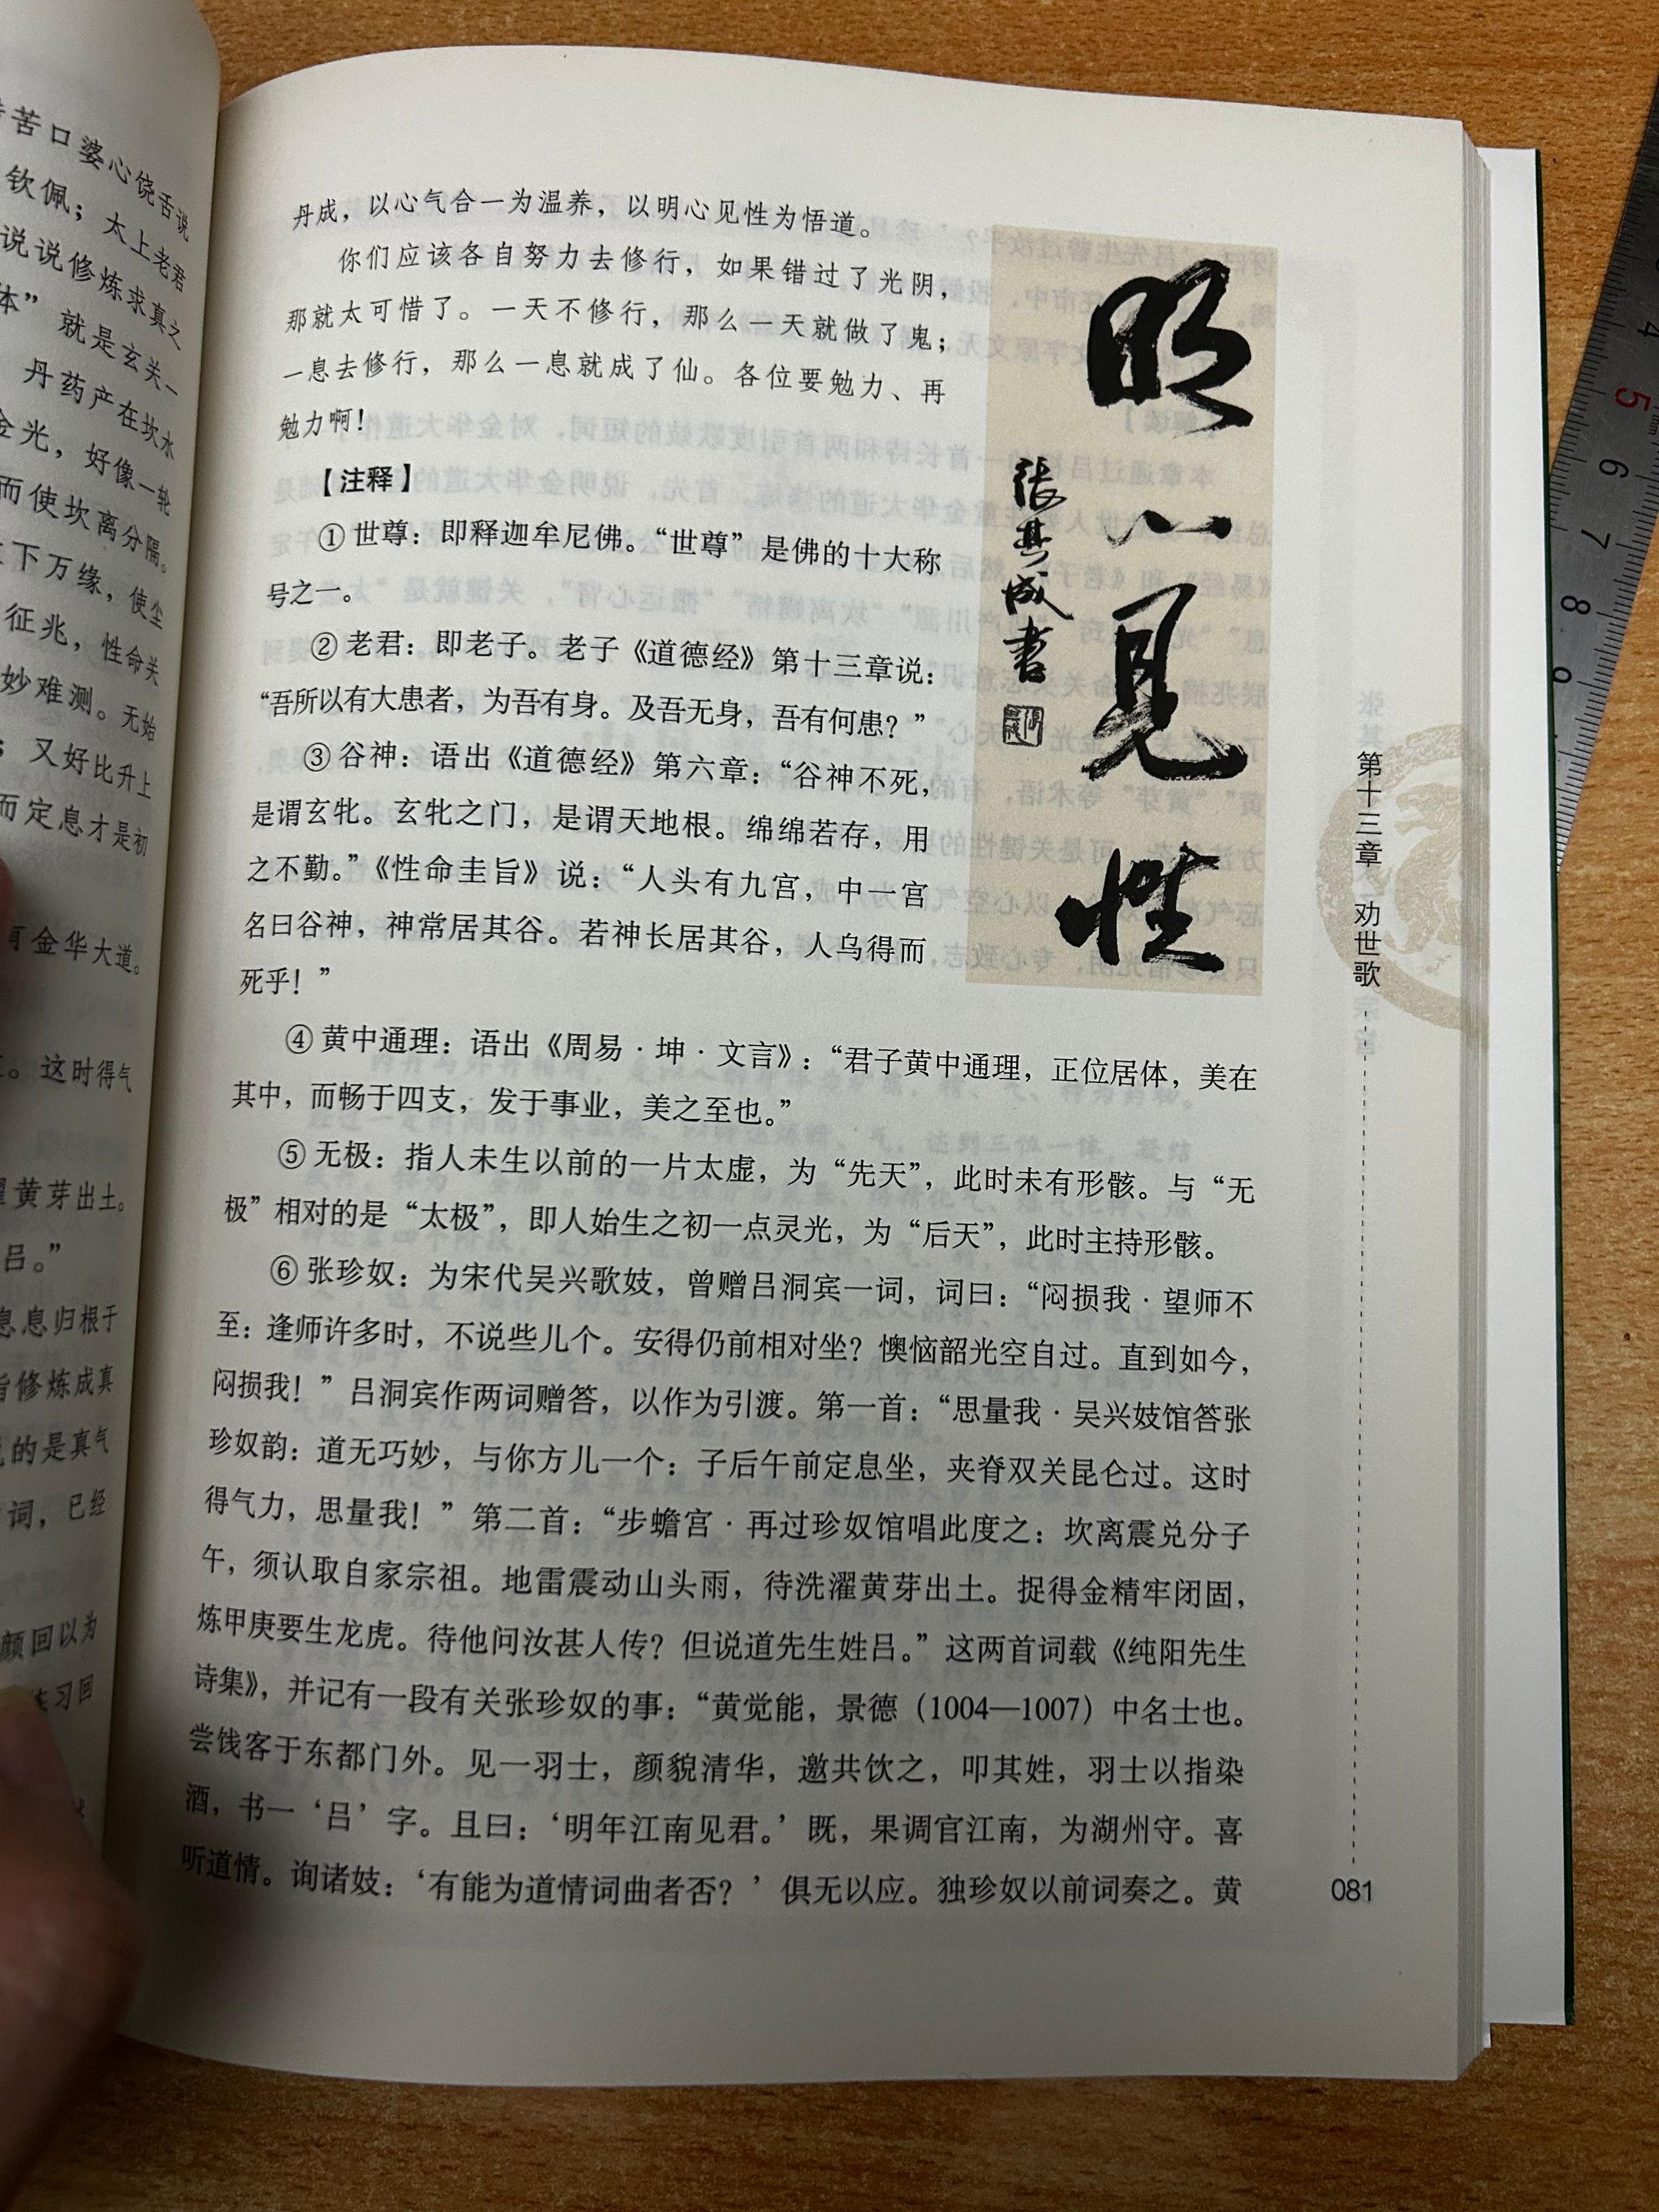 苦口婆心饶舌说
钦佩；太上老君
说说修炼求真之
体”就是玄关一
丹药产在坎水
金光，好像一轮
而使坎离分隔。
下万缘，使尘
征兆，性命关
妙难测。无始
；又好比升上
而定息才是初
有金华大道。
。这时得气
黄芽出土。
吕。”
息息归根于
修炼成真
的是真气
词，已经
颜回以为
练习回
丹成，以心气合一为温养，以明心见性为悟道。
你们应该各自努力去修行，如果错过了光阴，
那就太可惜了。一天不修行，那么一天就做了鬼；
一息去修行，那么一息就成了仙。各位要勉力、再
勉力啊！
【注释】
①世尊：即释迦牟尼佛。“世尊”是佛的十大称
号之一。
②老君：即老子。老子《道德经》第十三章说：
“吾所以有大患者，为吾有身。及吾无身，吾有何患？”
③谷神：语出《道德经》第六章：“谷神不死，
是谓玄牝。玄牝之门，是谓天地根。绵绵若存，用
之不勤。”《性命圭旨》说：“人头有九宫，中一宫
名曰谷神，神常居其谷。若神长居其谷，人乌得而
死乎！”
明心见性
张其成书
④黄中通理：语出《周易·坤·文言》：“君子黄中通理，正位居体，美在
其中，而畅于四支，发于事业，美之至也。”
⑤无极：指人未生以前的一片太虚，为“先天”，此时未有形骸。与“无
极”相对的是“太极”，即人始生之初一点灵光，为“后天”，此时主持形骸。
⑥张珍奴：为宋代吴兴歌妓，曾赠吕洞宾一词，词曰：“闷损我·望师不
至：逢师许多时，不说些儿个。安得仍前相对坐？懊恼韶光空自过。直到如今，
闷损我！”吕洞宾作两词赠答，以作为引渡。第一首：“思量我·吴兴妓馆答张
珍奴韵：道无巧妙，与你方儿一个：子后午前定息坐，夹脊双关昆仑过。这时
得气力，思量我！”第二首：“步蟾宫·再过珍奴馆唱此度之：坎离震兑分子
午，须认取自家宗祖。地雷震动山头雨，待洗濯黄芽出土。捉得金精牢闭固，
炼甲庚要生龙虎。待他问汝甚人传？但说道先生姓吕。”这两首词载《纯阳先生
诗集》，并记有一段有关张珍奴的事：“黄觉能，景德（1004—1007）中名士也。
尝饯客于东都门外。见一羽士，颜貌清华，邀共饮之，叩其姓，羽士以指染
酒，书一‘吕’字。且曰：‘明年江南见君。’既，果调官江南，为湖州守。喜
听道情。询诸妓：‘有能为道情词曲者否？’俱无以应。独珍奴以前词奏之。黄
第十三章 劝世歌
081
4
5
6
7
8
9